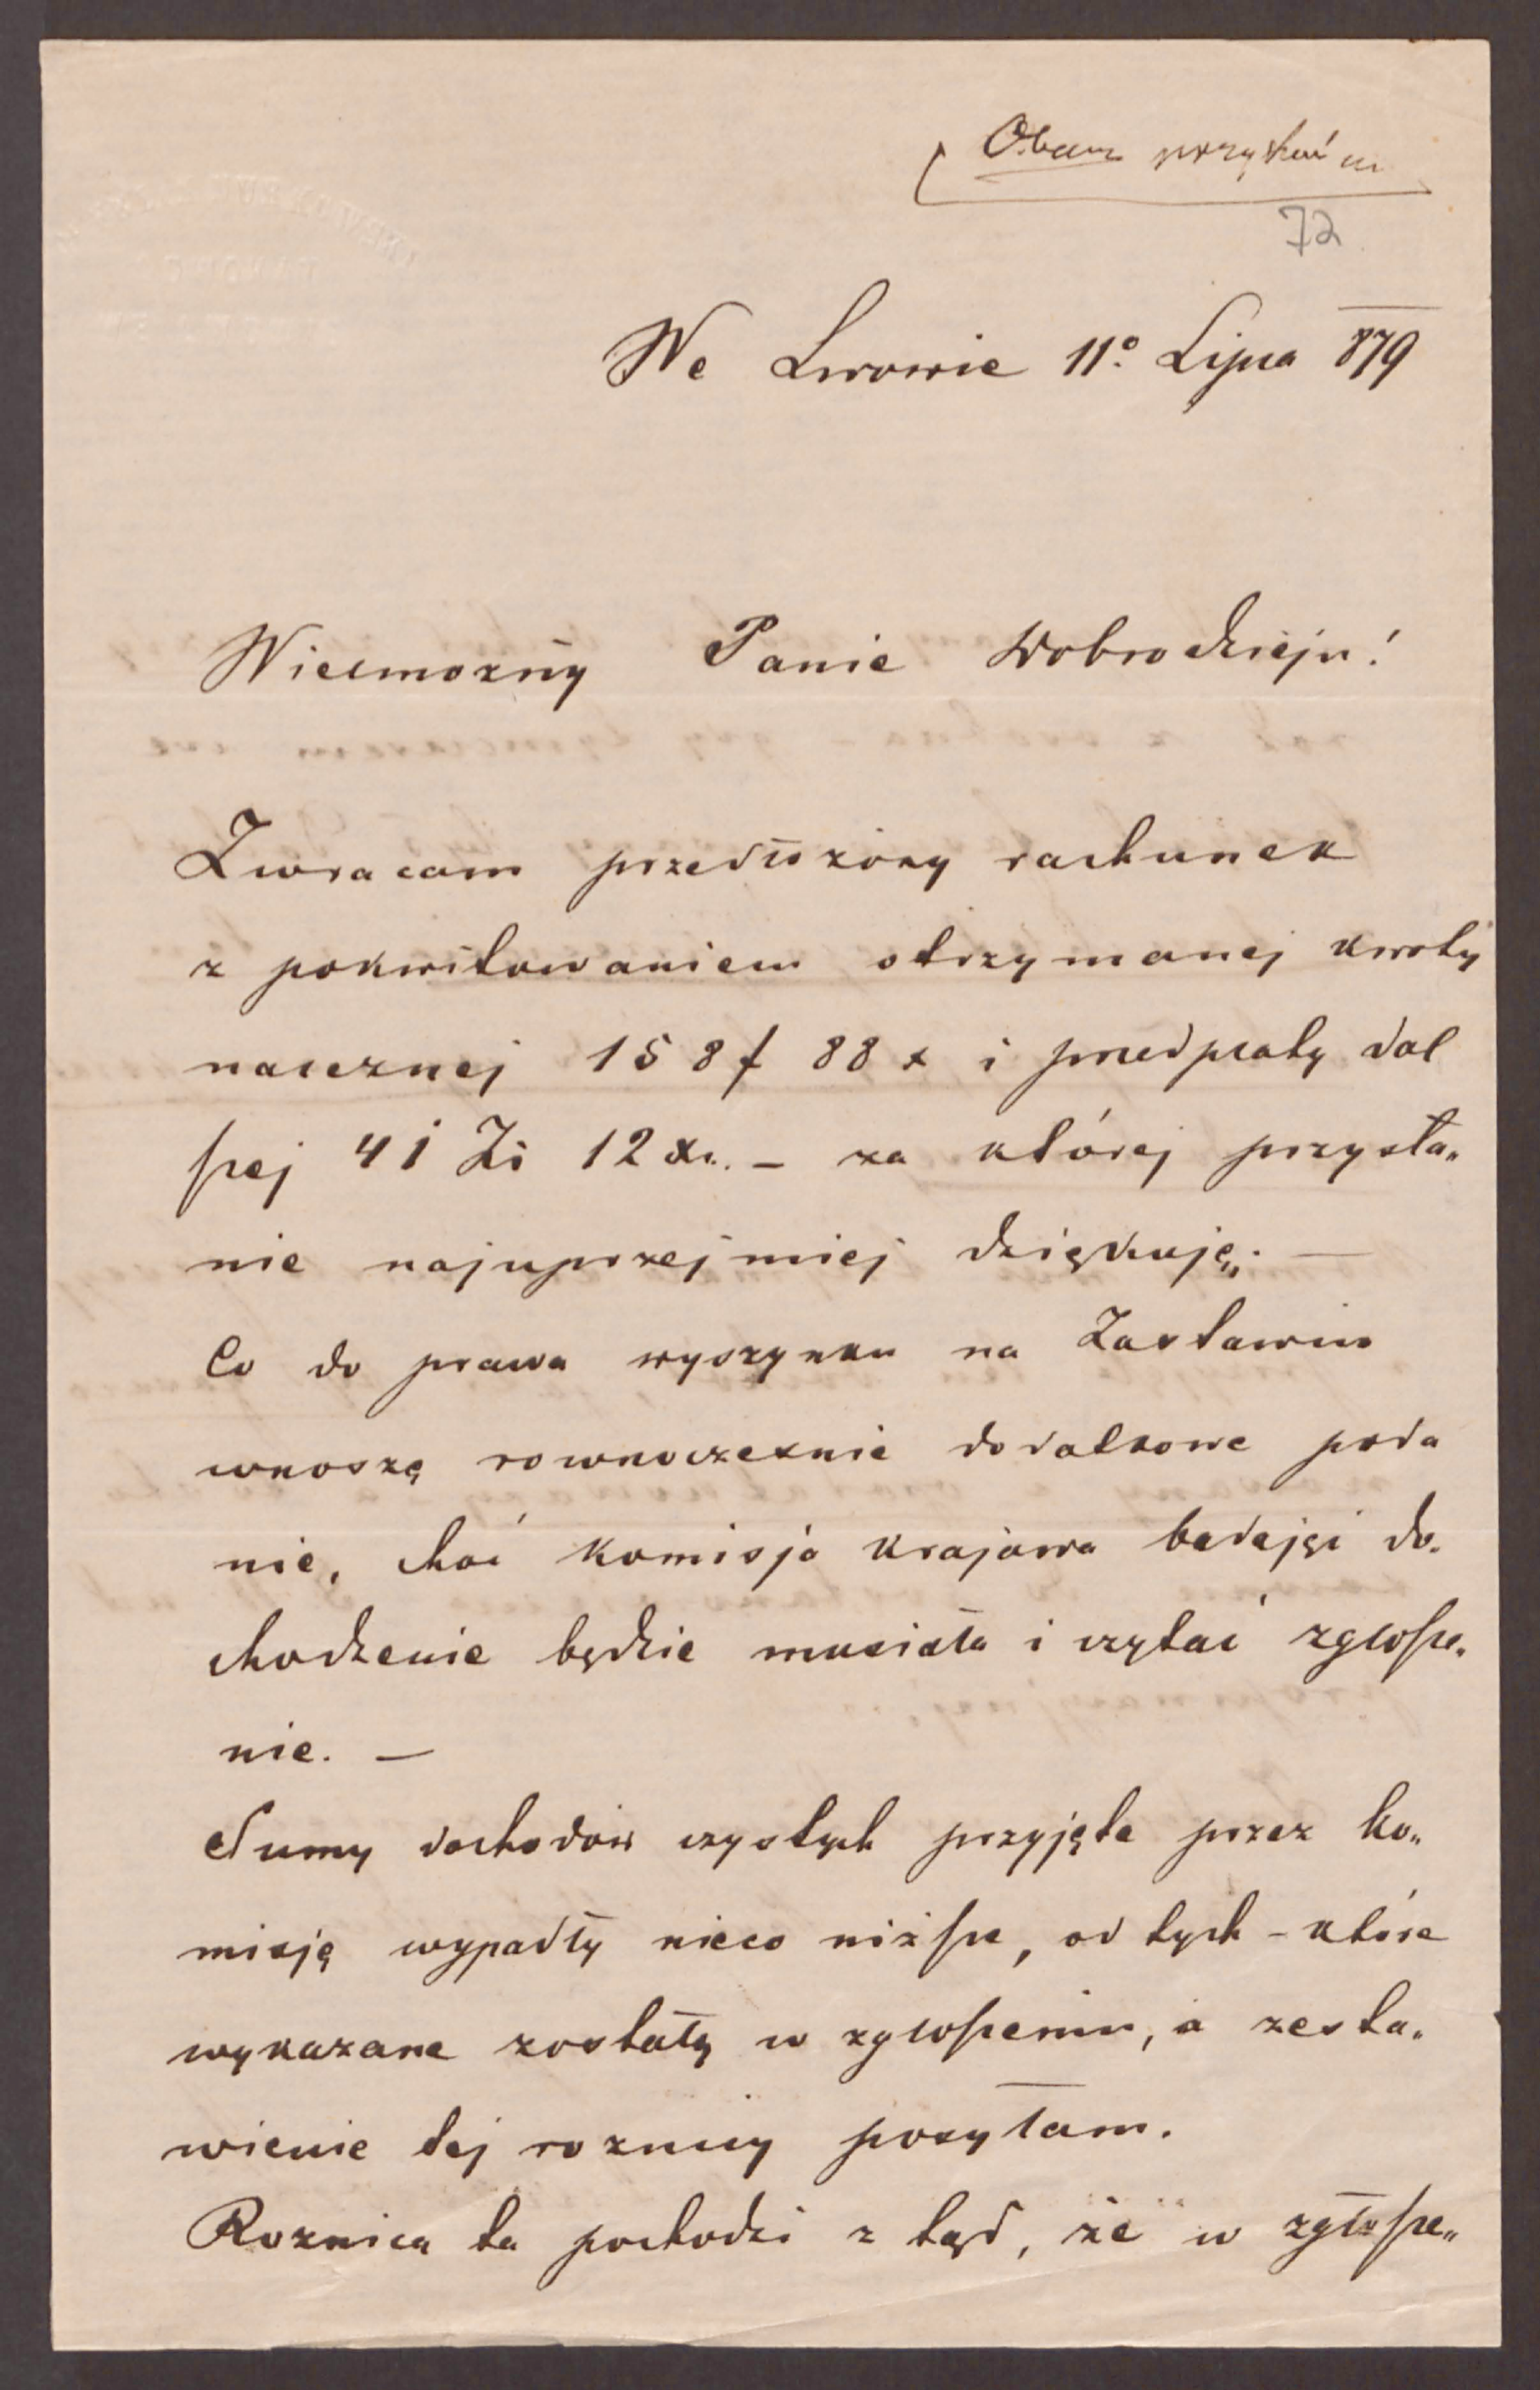 72
We Lwowie 11º Lipca 879
Wielmożny Panie Dobrodzieju!
Zwracam przedłożony rachunek
z pokwitowaniem otrzymanej kwoty
należnej 158 f 88 x i przedpłaty dal
szej 41 Zł 12 xr. – za której przysła„
nie najuprzejmiej dziękuję. —
Co do prawa wyszynku na Zasławiu
wnoszę rownocześnie dodatkowe poda
nie, choć komisja krajowa do„
chodzenie będzie musiała i czytać zgłosze„
nie. —
Sumy dochodów czystych przyjęte przez ko„
misję wypadły nieco niższe, od tych – które
wykazane zostały w zgłoszeniu, a zesta„
wienie tej roznicy posyłam.
Roznica ta pochodzi z tąd, że w zgłosze„